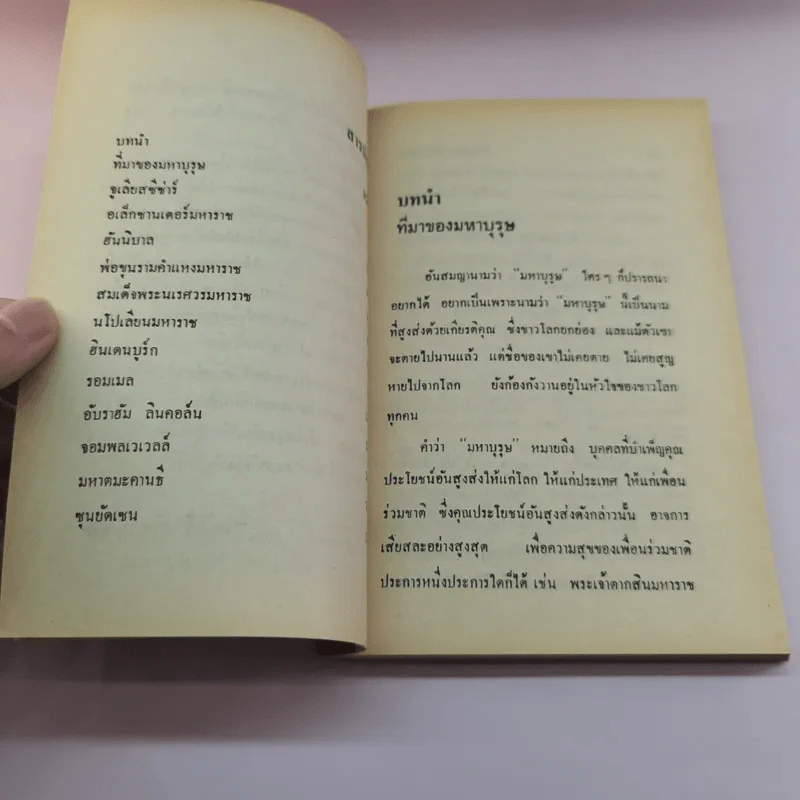 บทนำ
ที่มาของมหาบุรุษ
จูเลียสซีซ่าร์
อเล็กซานเดอร์มหาราช
ฮันนิบาล
พ่อขุนรามคำแหงมหาราช
สมเด็จพระนเรศวรมหาราช
นโปเลียนมหาราช
ฮินเดนบูร์ก
รอมเมล
อับราฮัม ลินคอล์น
จอมพลเวเวลล์
มหาตมะคานธี
ซุนยัดเซน
บทนำ
ที่มาของมหาบุรุษ
อันสมญานามว่า "มหาบุรุษ" ใคร ๆ ก็ปรารถนา
อยากได้ อยากเป็นเพราะนามว่า "มหาบุรุษ" นี้เป็นนาม
ที่สูงส่งด้วยเกียรติคุณ ซึ่งชาวโลกยกย่อง และแม้ตัวเขา
จะตายไปนานแล้ว แต่ชื่อของเขาไม่เคยตาย ไม่เคยสูญ
หายไปจากโลก ยังก้องกังวานอยู่ในหัวใจของชาวโลก
ทุกคน
คำว่า "มหาบุรุษ" หมายถึง บุคคลที่บำเพ็ญคุณ
ประโยชน์อันสูงส่งให้แก่โลก ให้แก่ประเทศ ให้แก่เพื่อน
ร่วมชาติ ซึ่งคุณประโยชน์อันสูงส่งดังกล่าวนั้น อาจการ
เสียสละอย่างสูงสุด เพื่อความสุขของเพื่อนร่วมชาติ
ประการหนึ่งประการใดก็ได้ เช่น พระเจ้าตากสินมหาราช